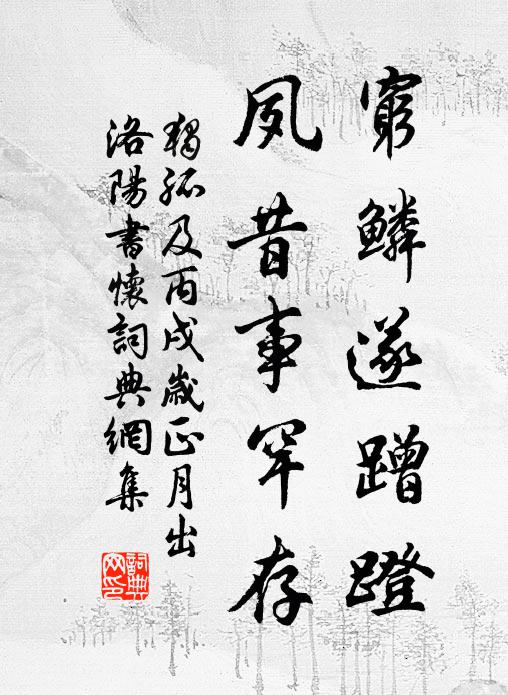 窮鱗遂蹭蹬
夙昔事罕存
獨孤及丙戌歲正月出
洛陽書懷詞典網集
詞典網印